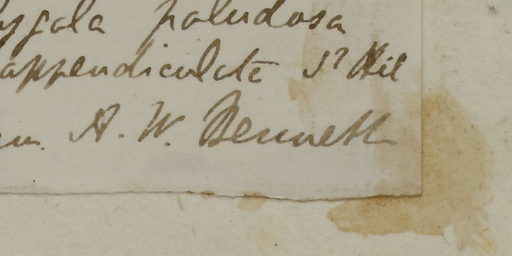 ygala paludosa
appendiculata St Hil
m. A. W. Bennett